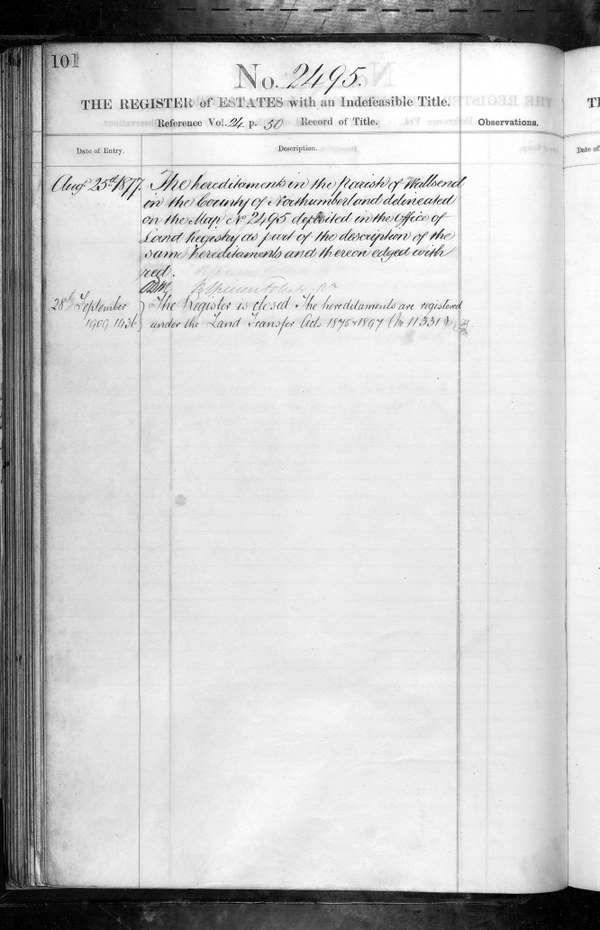 101
No. 2495.
THE REGISTER of ESTATES with an Indefeasible Title.
Reference Vol. 24 p. 50 Record of Title.
Observations.
Date of Entry.
Description.
Augt 25th 1877.
The hereditaments in the parish of Wallsend
in the County of Northumberland delineated
on the Map No 2495 deposited in the Office of
Land Registry as part of the description of the
same hereditaments and thereon edged with
red.
28th September
1909 1436
The Register is closed The hereditaments are registered
under the Land Transfer Acts 1875 & 1897 (No 11331
TH
Date of